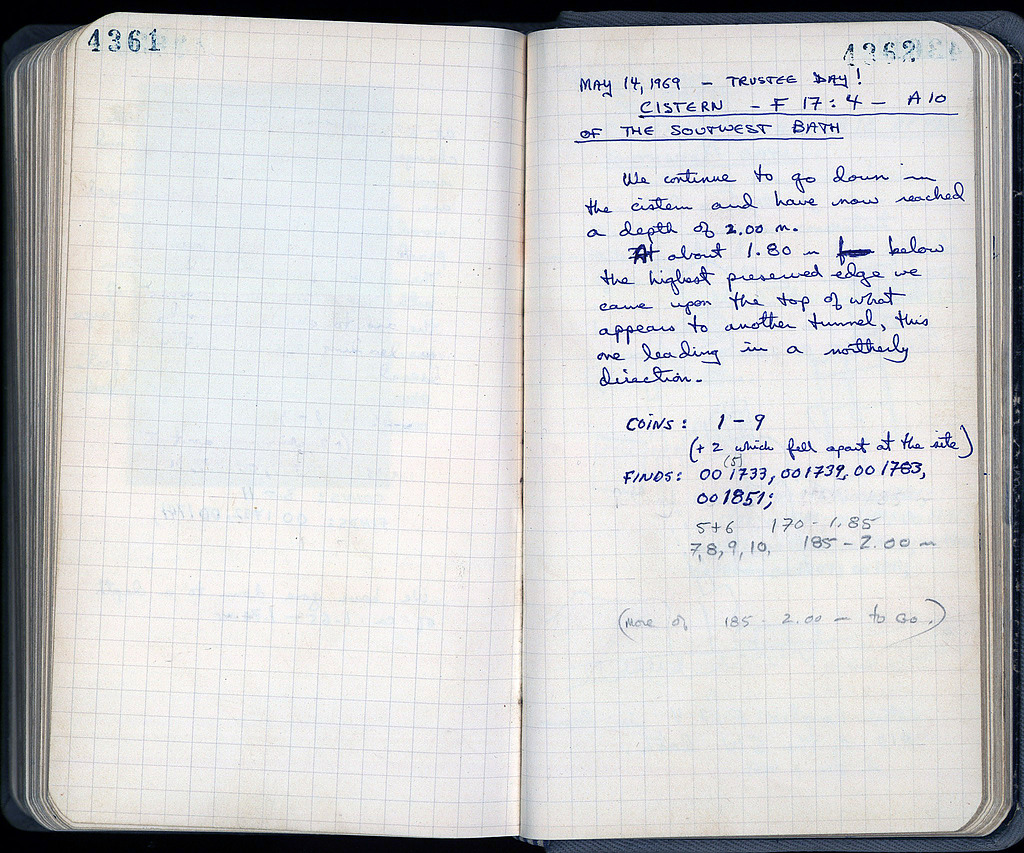 4361
4362
MAY 14, 1969 - TRUSTEE DAY!
CISTERN - F 17 : 4 - A 10
OF THE SOUTWEST BATH
We continue to go down in
the cistern and have now reached
a depth of 2.00 m.
At about 1.80 m below
the highest preserved edge we
came upon the top of what
appears to another tunnel, this
one leading in a northerly
direction.
COINS: 1 - 9
(+ 2 which fell apart at the site)
(5)
FINDS: 001733, 001739, 001763,
001851;
5+6 170 - 1.85
7,8,9,10, 185 - 2.00 m
(More of 185 - 2.00 m to Go.)